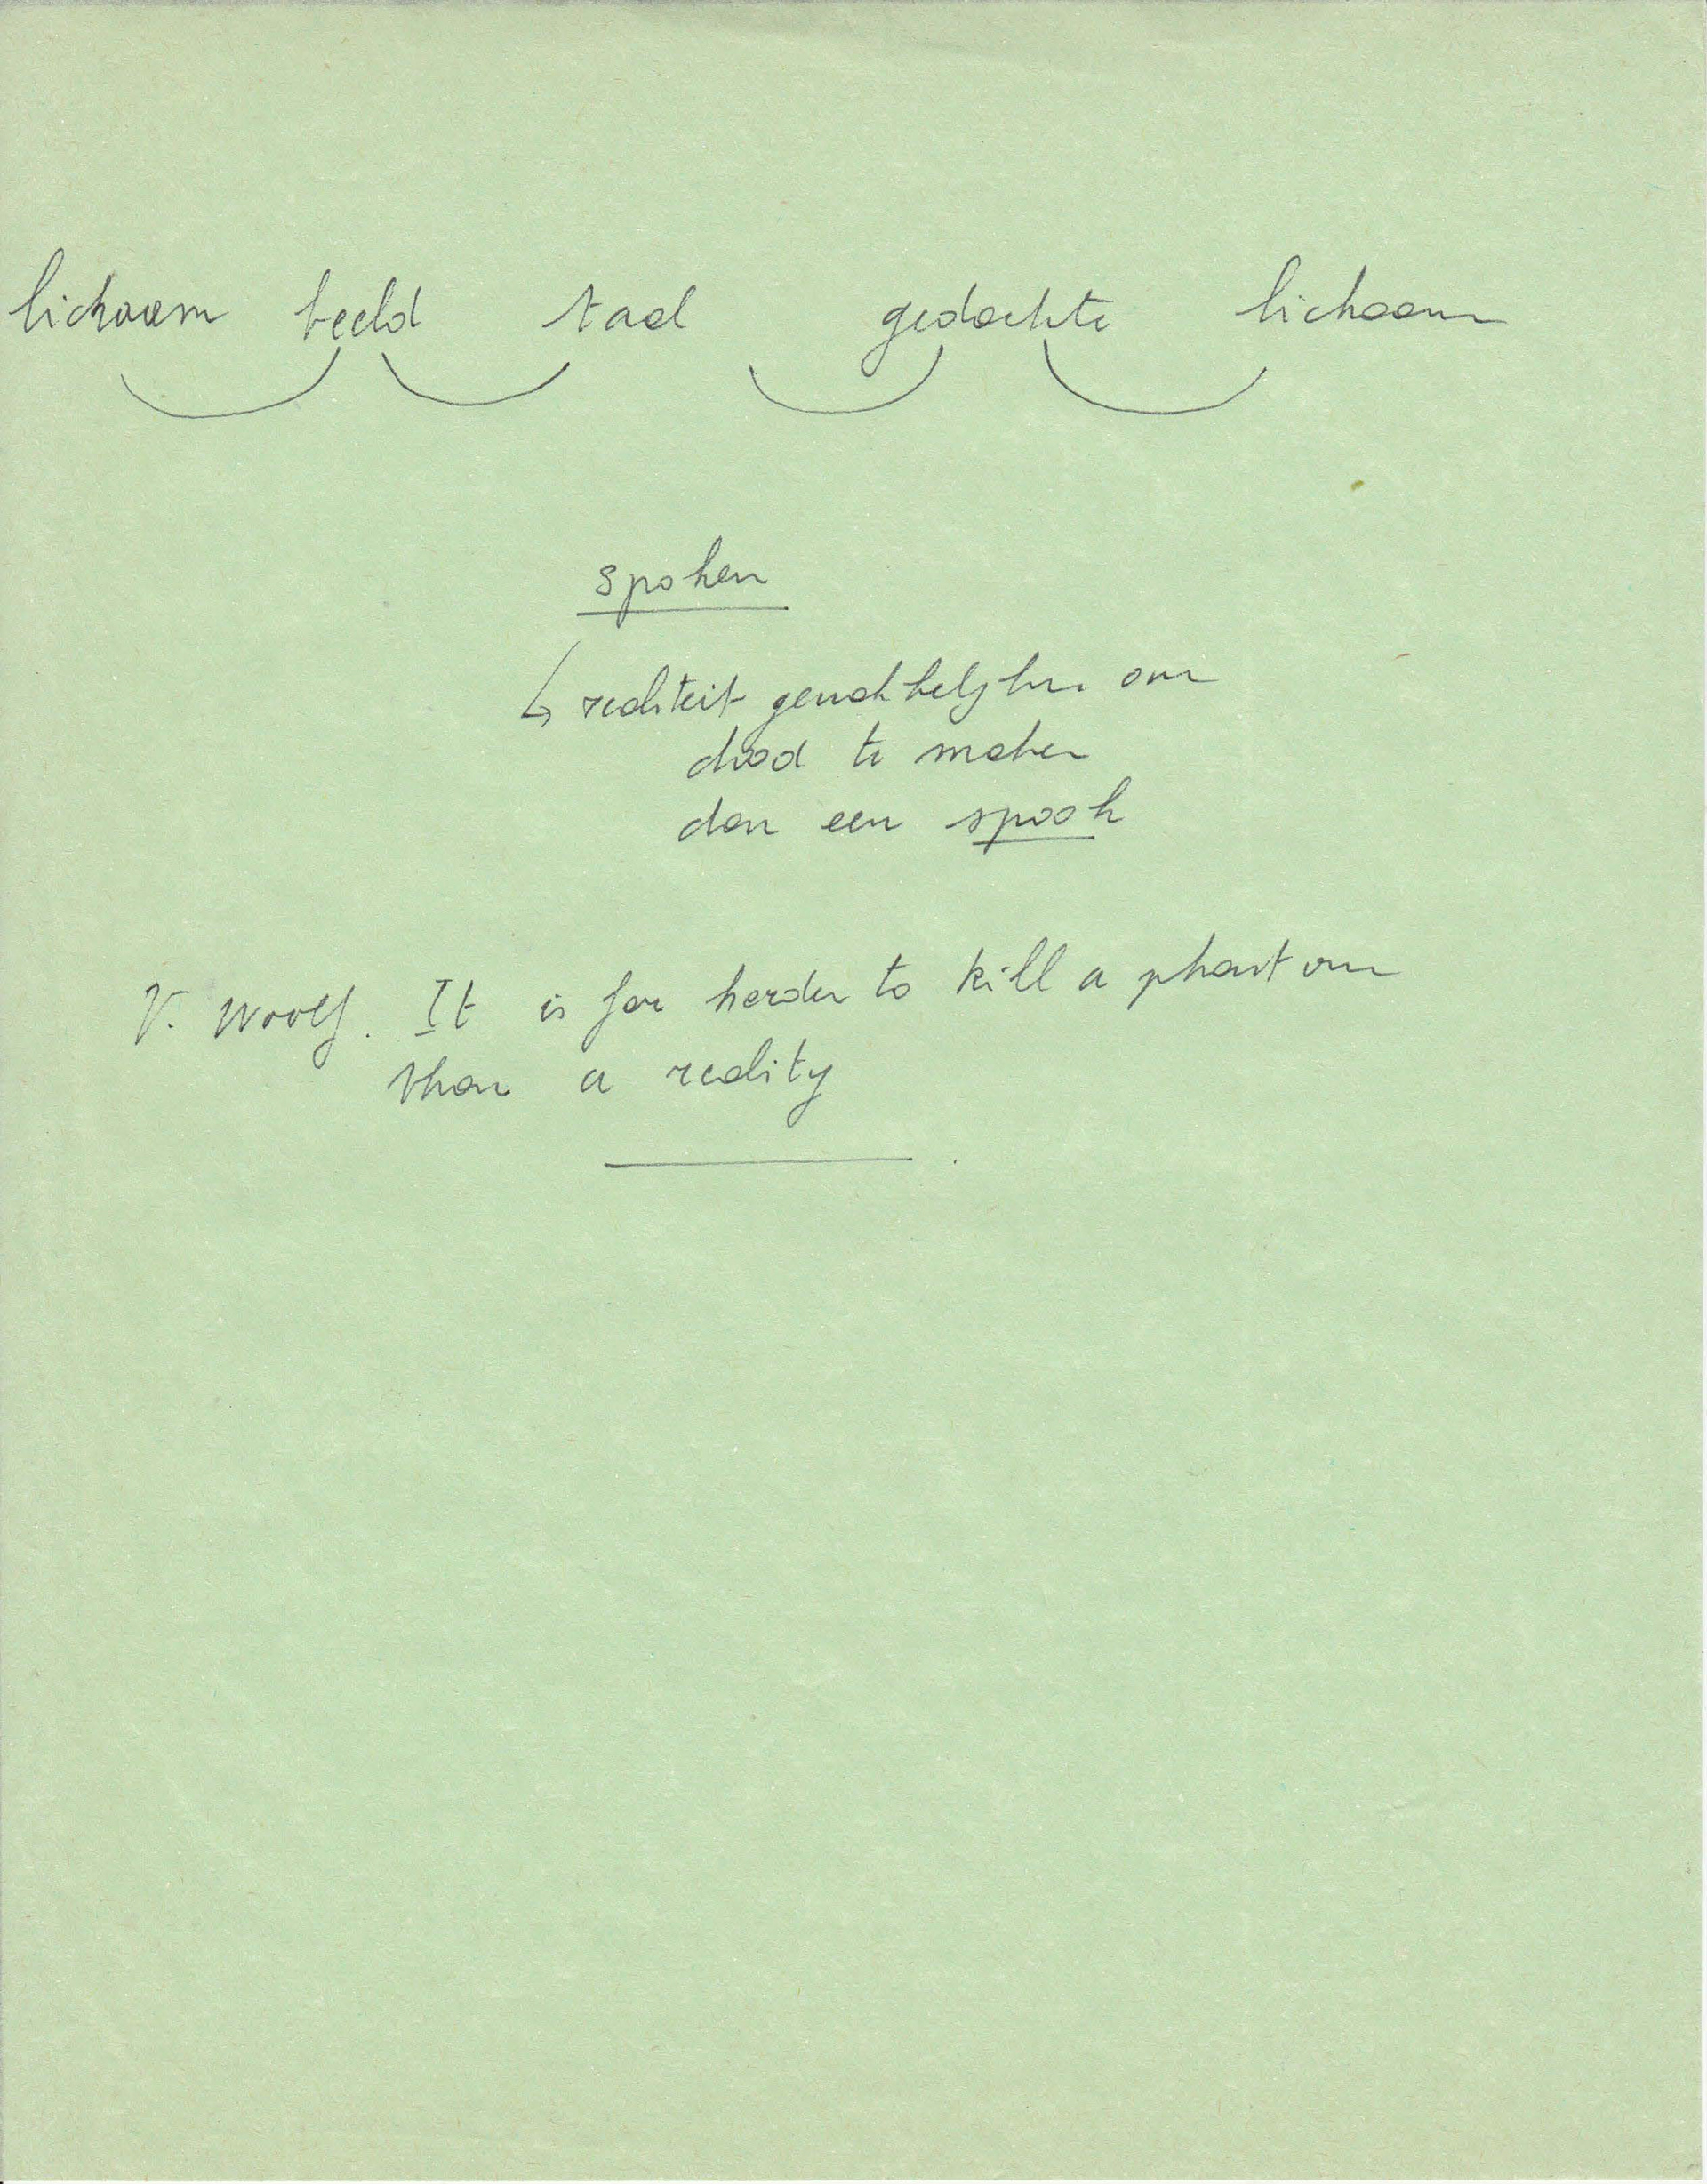 lichaam beeld taal gedachte lichaam
spoken
realiteit gemakkelijker om
dood te maken
dan een spook
V. Woolf. It is far harder to kill a phantom
than a reality